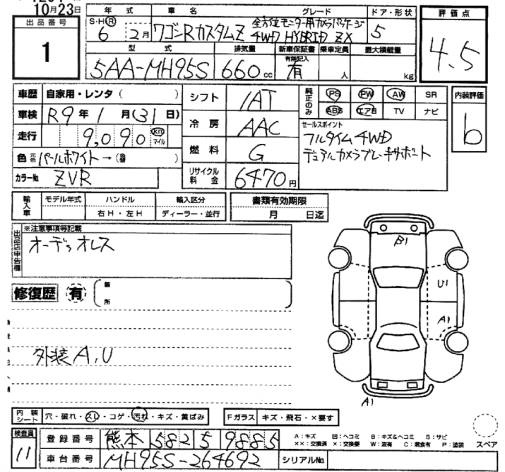 10月23日
出品番号
1
年式 車名 グレード ドア・形状
S・H・R 6年 2月 ワゴンRカスタムZ 全方位モニター用カメラパッケージ 4WD HYBRID ZX 5
評価点
4.5
型式 排気量 新車保証書 乗車定員 最大積載量
5AA-MH95S 660cc 有 有無記入 人 kg
車歴 自家用・レンタ( )
車検 R9年1月(31)日
走行 9,090 km マイル
色 元色 パールホワイト→(替 )
カラーNo ZVR
シフト IAT
冷房 AAC
燃料 G
リサイクル料金 6470円
純正のみ PS PW AW SR
ABS エアB TV ナビ
セールスポイント
フルタイム4WD
デュアルカメラブレーキサポート
内装評価
b
輸入車 モデル年式 ハンドル 輸入区分
年 右H・左H ディーラー・並行
書類有効期限
月 日迄
出品店申告欄
※注意事項記載
オーディオレス
修復歴 有
箇所
外装A,U
B1
U1
A1
A1
内装シート 穴・破れ・スレ・コゲ・汚れ・キズ・黄ばみ
Fガラス キズ・飛石・×要す
検査員
11
登録番号 熊本 582 5 9885
車台番号 MH95S-264692
シリアルNo
スペア